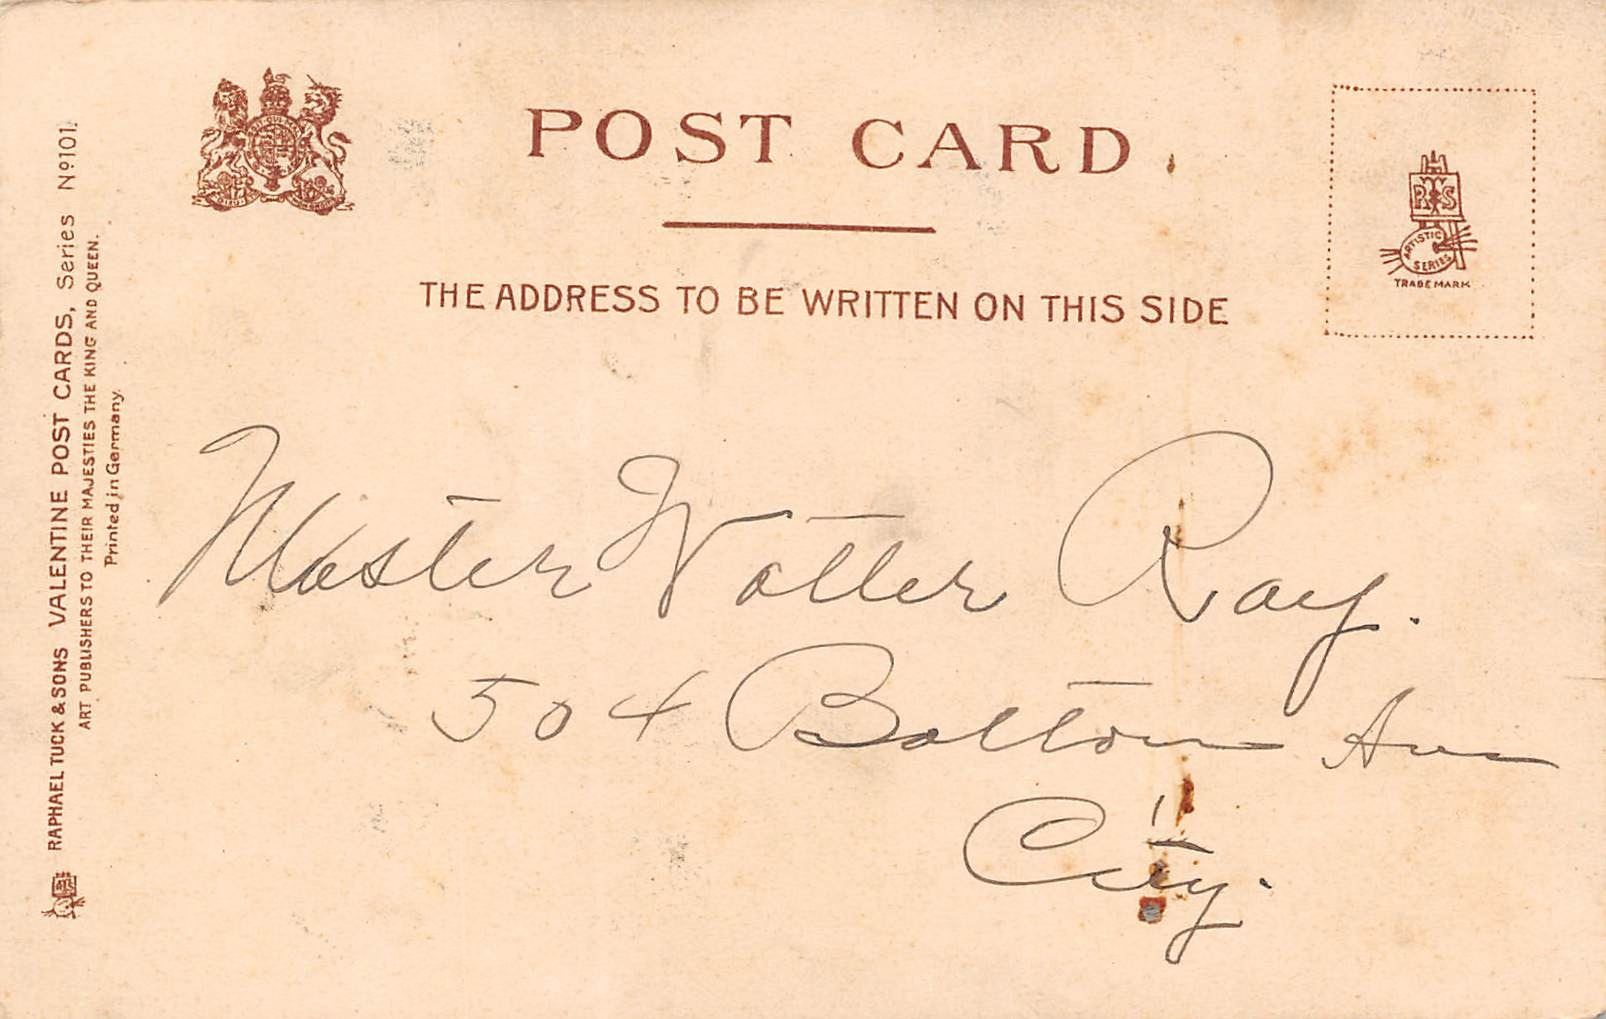 POST CARD
THE ADDRESS TO BE WRITTEN ON THIS SIDE
R T S
ARTISTIC SERIES
TRADE MARK
RAPHAEL TUCK & SONS VALENTINE POST CARDS, Series Nº 101.
ART PUBLISHERS TO THEIR MAJESTIES THE KING AND QUEEN.
Printed in Germany.
Master Votter Ray.
504 Bolton Ave
City.